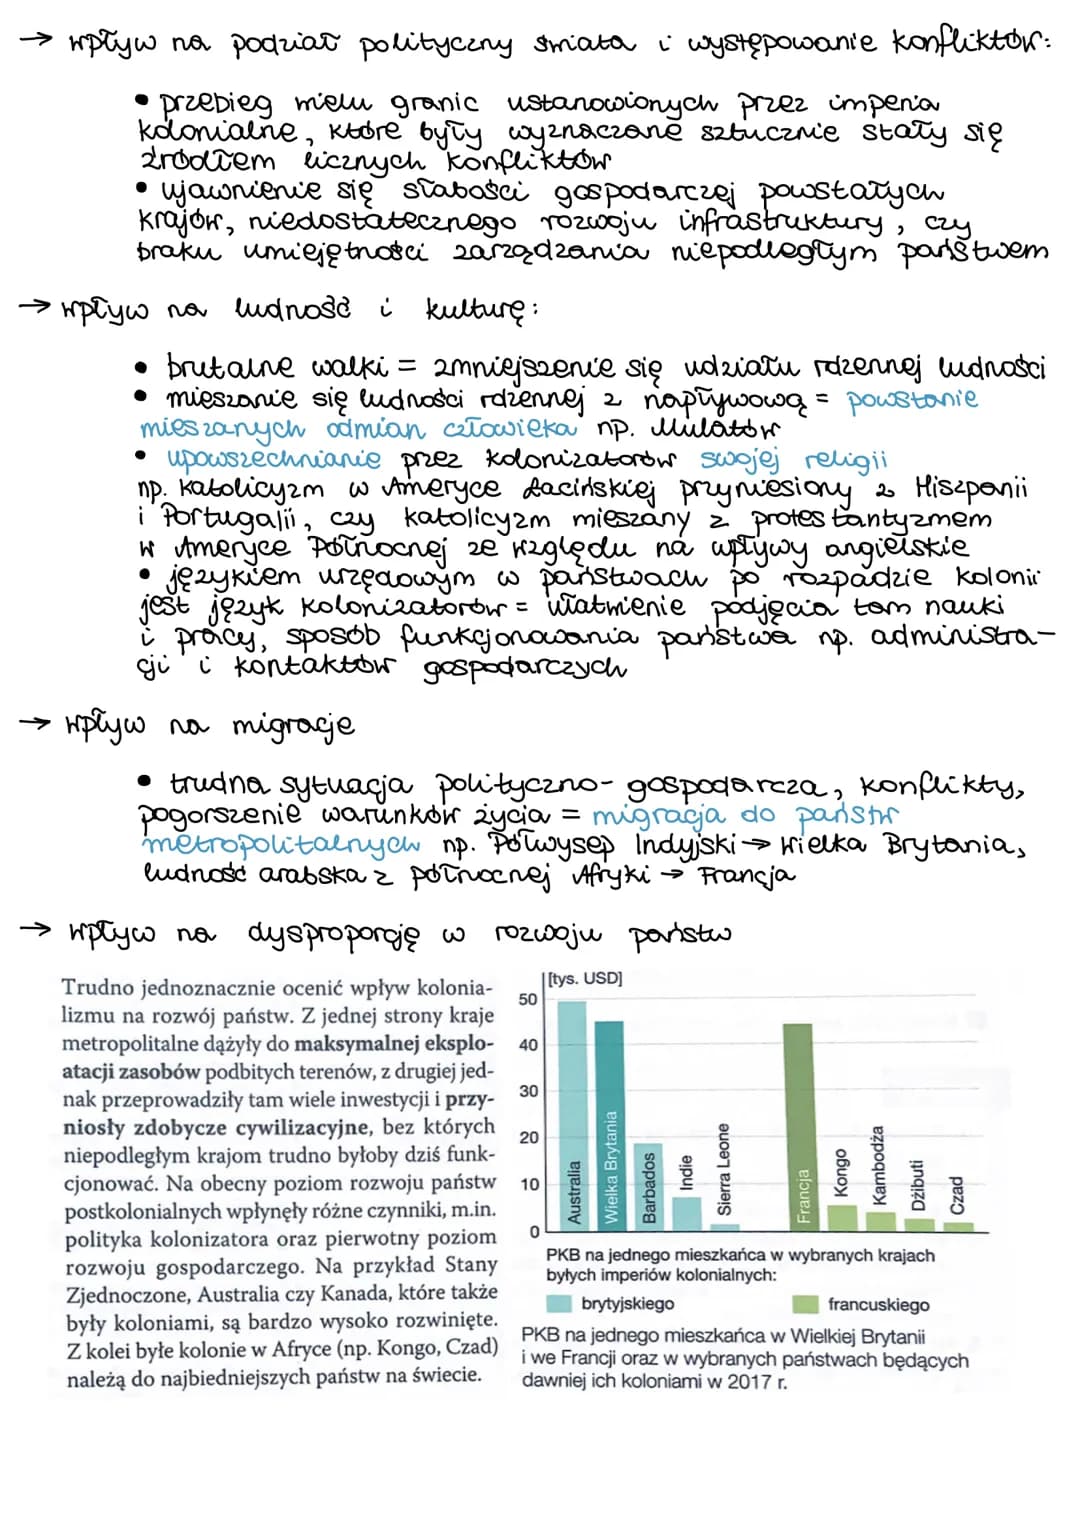 → wpływ na podział polityczny świata i występowanie konfliktów:
• przebieg wielu granic ustanowionych przez imperia
kolonialne, które były wyznaczane sztucznie stały się
źródłem licznych konfliktów
• ujawnienie się słabości gospodarczej powstałych
krajów, niedostatecznego rozwoju infrastruktury, czy
braku umiejętności zarządzania niepodległym państwem
→ wpływ na ludność i kulturę:
• brutalne walki = zmniejszenie się udziału rdzennej ludności
• mieszanie się ludności rdzennej z napływową = powstanie
mieszanych odmian człowieka np. Mulatów
• upowszechnianie przez kolonizatorów swojej religii
np. katolicyzm w Ameryce Łacińskiej przyniesiony z Hiszpanii
i Portugalii, czy katolicyzm mieszany z protestantyzmem
w Ameryce Północnej ze względu na wpływy angielskie
• językiem urzędowym w państwach po rozpadzie kolonii
jest język kolonizatorów = ułatwienie podjęcia tam nauki
i pracy, sposób funkcjonowania państwa np. administra-
cji i kontaktów gospodarczych
→ wpływ na migracje
• trudna sytuacja polityczno-gospodarcza, konflikty,
pogorszenie warunków życia = migracja do państw
metropolitalnych np. Półwysep Indyjski → Wielka Brytania,
ludność arabska z północnej Afryki → Francja
→ wpływ na dysproporcję w rozwoju państw
Trudno jednoznacznie ocenić wpływ kolonia-
lizmu na rozwój państw. Z jednej strony kraje
metropolitalne dążyły do maksymalnej eksplo-
atacji zasobów podbitych terenów, z drugiej jed-
nak przeprowadziły tam wiele inwestycji i przy-
niosły zdobycze cywilizacyjne, bez których
niepodległym krajom trudno byłoby dziś funk-
cjonować. Na obecny poziom rozwoju państw
postkolonialnych wpłynęły różne czynniki, m.in.
polityka kolonizatora oraz pierwotny poziom
rozwoju gospodarczego. Na przykład Stany
Zjednoczone, Australia czy Kanada, które także
były koloniami, są bardzo wysoko rozwinięte.
Z kolei byłe kolonie w Afryce (np. Kongo, Czad)
należą do najbiedniejszych państw na świecie.
[tys. USD]
50
40
30
20
10
0
Australia
Wielka Brytania
Barbados
Indie
Sierra Leone
Francja
Kongo
Kambodża
Dżibuti
Czad
PKB na jednego mieszkańca w wybranych krajach
byłych imperiów kolonialnych:
brytyjskiego
francuskiego
PKB na jednego mieszkańca w Wielkiej Brytanii
i we Francji oraz w wybranych państwach będących
dawniej ich koloniami w 2017 r.